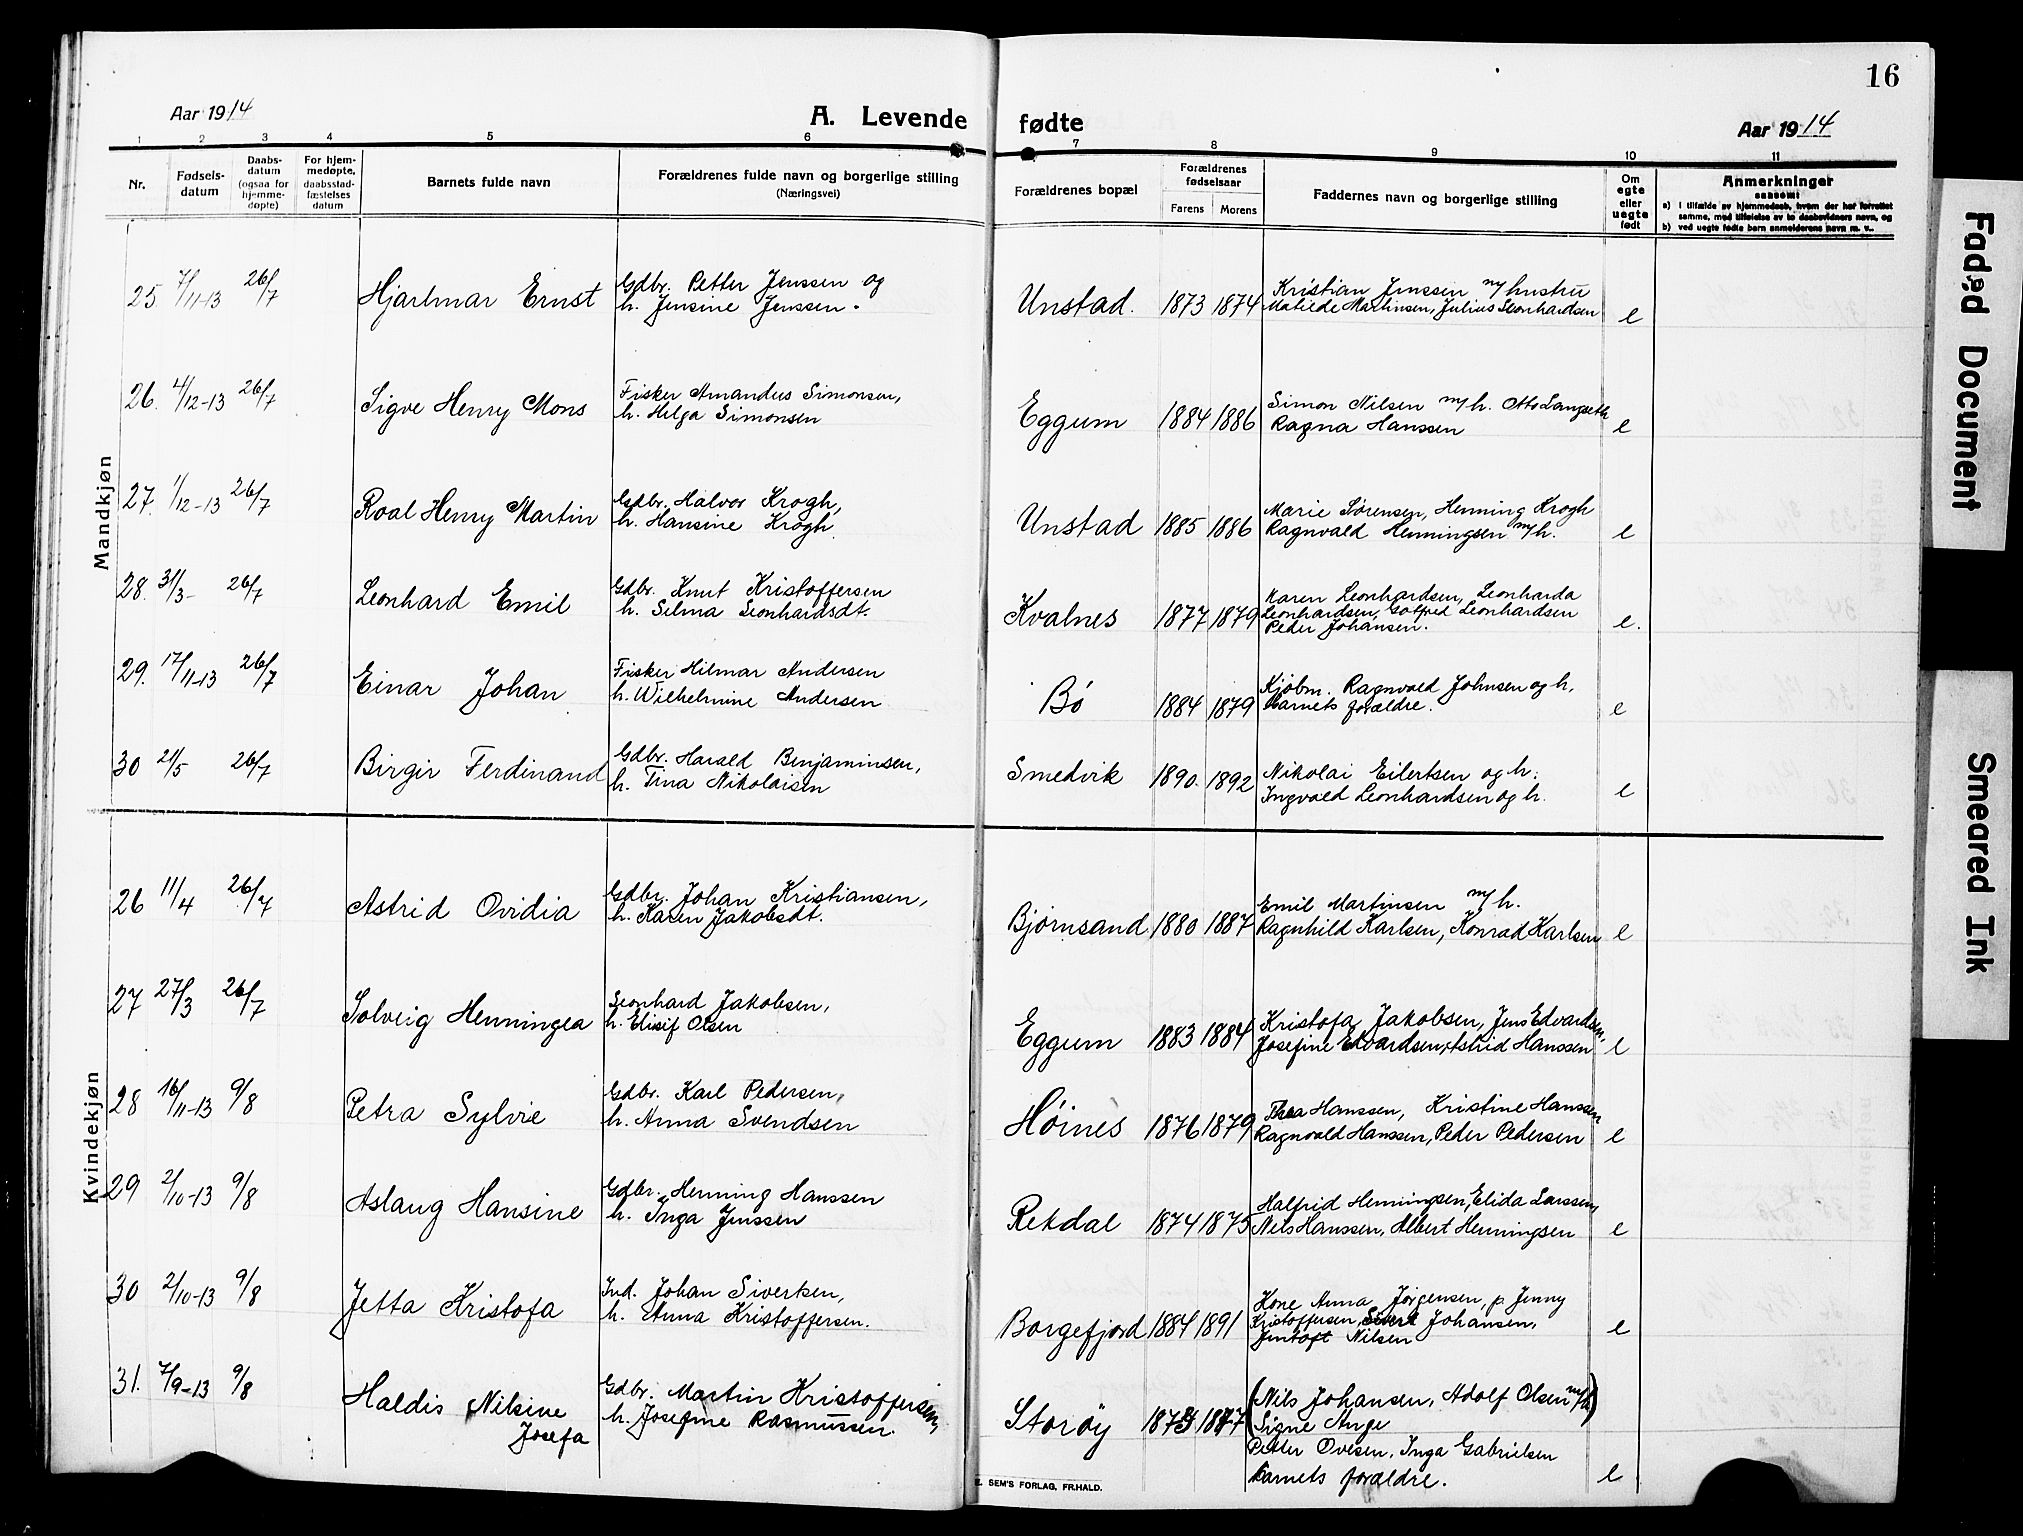 16
Aar 1914
A. Levende fødte
Aar 1914
1 2 3 4 5 6 7 8 9 10 11
Nr.
Fødsels-
datum
Daabs-
datum
(ogsaa for
hjemme-
døpte)
For hjem-
medøpte,
daabsstad-
fæstelses
datum
Barnets fulde navn
Forældrenes fulde navn og borgerlige stilling
(Næringsvei)
Forældrenes bopæl
Forældrenes
fødselsaar
Farens Morens
Faddernes navn og borgerlige stilling
Om
egte
eller
uegte
født
Anmerkninger
saasom:
a) i tilfælde av hjemmedaab, hvem der har forrettet
samme, med tilføielse av to daabsvidners navn, og
b) ved uegte fødte barn anmelderens navn m. v..
Mandkjøn
25 7/11-13 26/7 Hjarlmar Ernst
Gdbr. Petter Jenssen og
h. Jensine Jenssen.
Unstad. 1873 1874
Kristian Jenssen m/ hustru
Matilde Martinsen, Julius Leonhardsen
e
26. 4/12-13 26/7 Sigve Henry Mons
Fisker Amandus Simonsen,
h. Helga Simonsen
Eggum 1884 1886
Simon Nilsen m/h. Otto Langseth
Ragna Hanssen
e
27. 1/12-13 26/7 Roal Henry Martin
Gdbr. Halvor Krogh,
h. Hansine Krogh.
Unstad 1885 1886
Marie Sørensen, Henning Krogh
Ragnvald Henningsen m/h.
e
28. 31/3- 26/7 Leonhard Emil
Gdbr. Knut Kristoffersen
h. Selma Leonhardsdt.
Kvalnes 1877 1879
Karen Leonhardsen, Leonharda
Leonhardsen, Gotfred Leonhardsen
Peder Johansen.
e.
29. 17/11-13 26/7 Einar Johan
Fisker Hilmar Andersen
h. Wilhelmine Andersen
Bø 1884 1879
Kjøbm. Ragnvald Johnsen og h.
Barnets forældre.
e
30 21/5 26/7 Birgir Ferdinand
Gdbr. Harald Benjaminsen,
h. Tina Nikolaisen
Smedvik 1890. 1892
Nikolai Eilertsen og h.
Ingvald Leonhardsen og h.
e
Kvindekjøn
26 11/4 26/7 Astrid Ovidia
Gdbr. Johan Kristiansen,
h. Karen Jakobsdt.
Bjørnsand 1880 1887
Emil Martinsen m/h.
Ragnhild Karlsen, Konrad Karlsen
e
27 27/3 26/7 Solveig Henningea
Leonhard Jakobsen,
h. Elisif Olsen
Eggum 1883 1884
Kristofa Jakobsen, Jens Edvardsen,
Josefine Edvardsen, Astrid Hanssen
e
28 16/11-13 9/8 Petra Sylvie
Gdbr. Karl Pedersen,
h. Anna Svendsen
Høines 1876 1879
Thea Hanssen, Kristine Hanssen
Ragnvald Hanssen, Peder Pedersen
e
29 2/10-13 9/8 Aslaug Hansine
Gdbr. Henning Hanssen
h. Inga Jenssen
Rekdal 1874 1875
Halfrid Henningsen, Elida Larssen,
Nils Hanssen, Albert Henningsen
e
30 2/10-13 9/8 Jetta Kristofa
Ind. Johan Sivertsen,
h. Anna Kristoffersen.
Borgefjord 1884 1891
Kone Anna Jørgensen, p. Jenny
Kristoffersen, Sivert Johansen,
Jentoft Nilsen
e
31. 7/9-13 9/8 Haldis Nilsine
Josefa
Gdbr. Martin Kristoffersen,
h. Josefine Rasmussen.
Storøy 1877
(Nils Johansen, Adolf Olsen m/h.)
Signe Ange
Petter Ovesen, Inga Gabrielsen
Barnets forældre.
e
E. SEM'S FORLAG, FR.HALD.
Faded Document
Smeared Ink